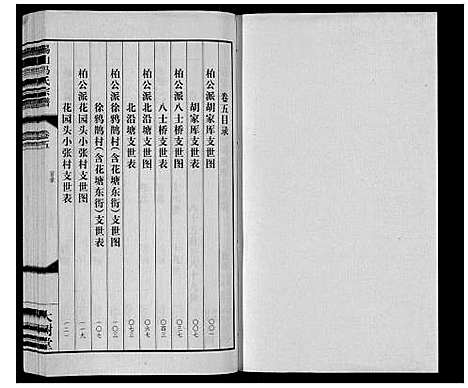 卷五目录
柏公派胡家厍支世图 〇〇一
胡家厍支世表 〇〇七
柏公派八士桥支世图 〇三七
八士桥支世表 〇四三
柏公派北沿塘支世图 〇六七
北沿塘支世表 〇七三
柏公派徐鸦鹊村(含花塘东衖)支世图 一〇三
徐鸦鹊村(含花塘东衖)支世表 一〇七
柏公派花园头小张村支世图 一一九
花园头小张村支世表 一二一
卷五
大树堂